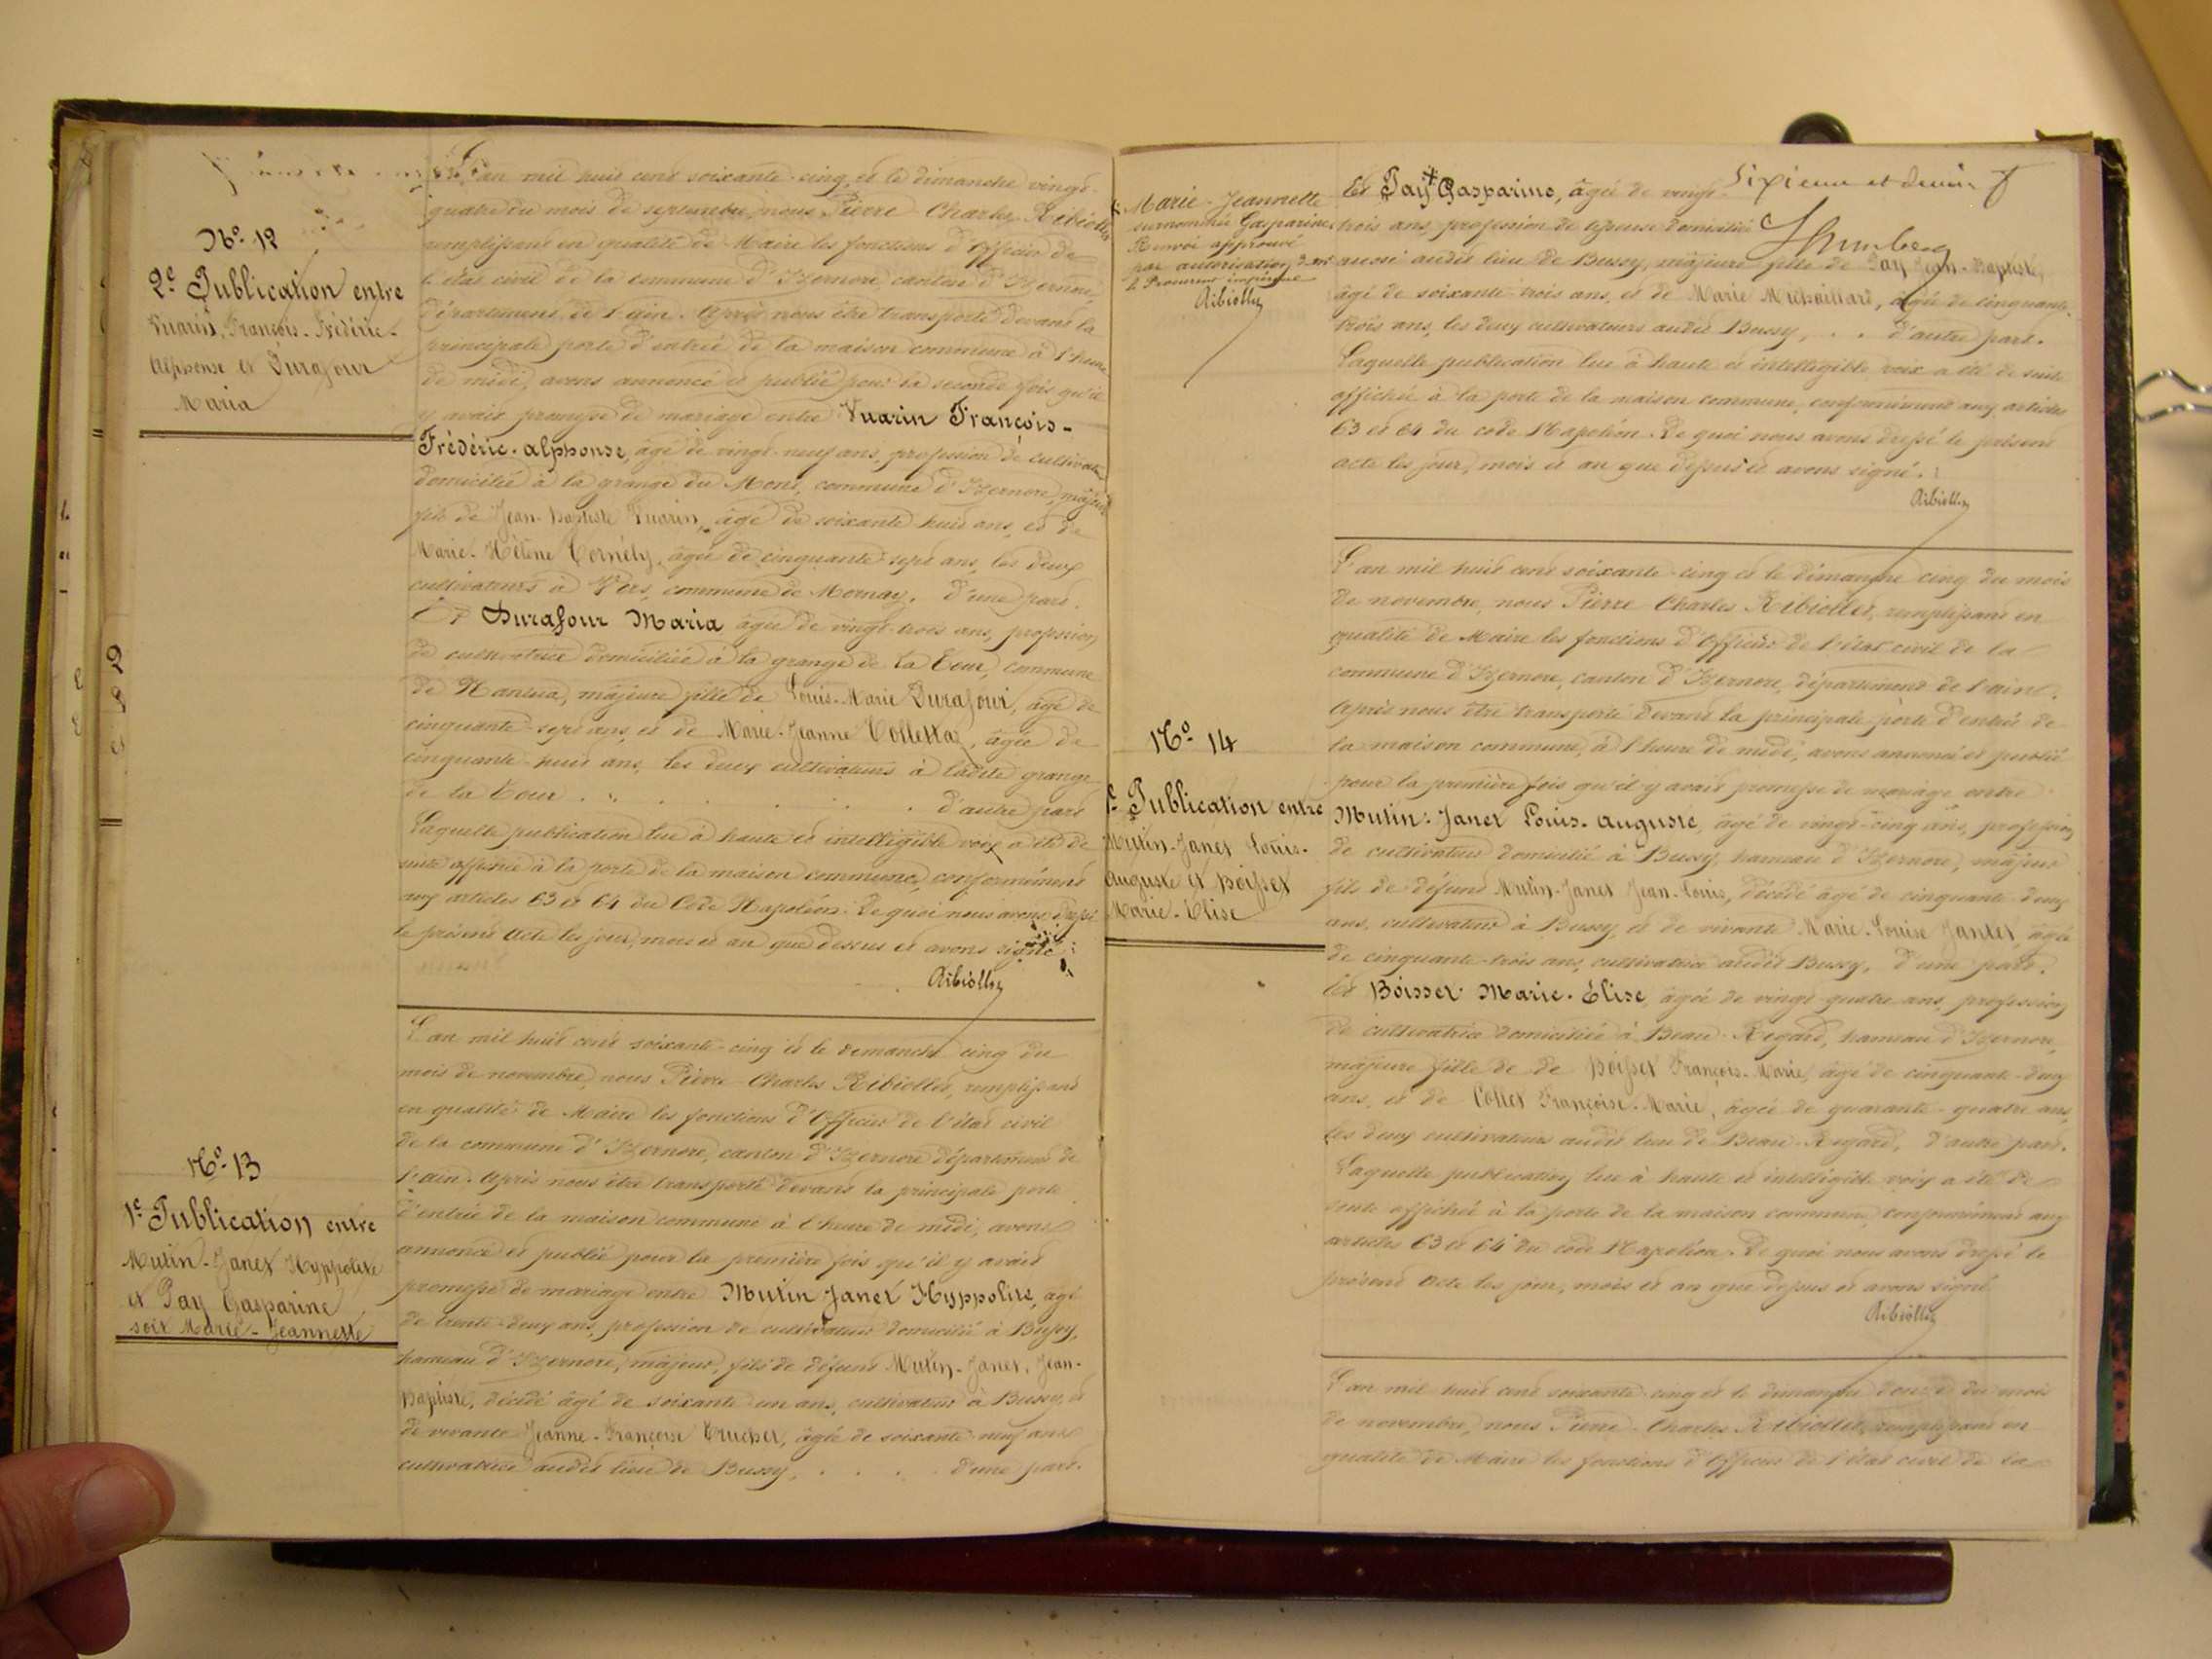 N° 12
2e Publication entre
Vuarin, François-Frédéric-
Alphonse et Durafour
Maria
L'an mil huit cent soixante-cinq et le dimanche vingt-
quatre du mois de septembre, nous Pierre Charles Ribiollet
remplissant en qualité de Maire les fonctions d'Officier de
l'état civil de la commune d'Izernore canton d'Izernore,
département de l'ain. Après nous être transporté devant la
principale porte d'entrée de la maison commune à l'heure
de midi, avons annoncé et publié pour la seconde fois qu'il
y avait promesse de mariage entre Vuarin François-
Frédéric-alphonse, âgé de vingt-neuf ans, profession de cultivateur
domicilié à la grange du Mont, commune d'Izernore, majeur
fils de Jean-Baptiste Vuarin, âgé de soixante huit ans, et de
Marie-Hélène Cornély, âgée de cinquante sept ans, les deux
cultivateurs à Vers, commune de Mornay. d'une part.
Et Durafour Maria âgée de vingt-trois ans, profession
de cultivatrice domiciliée à la grange de la Tour, commune
de Nantua, majeure fille de Louis-Marie Durafour, âgé de
cinquante-sept ans, et de Marie-Jeanne Collettaz, âgée de
cinquante-huit ans, les deux cultivateurs à ladite grange
de la Tour . . . . . . . d'autre part
Laquelle publication lue à haute et intelligible voix a été de
suite affichée à la porte de la maison commune, conformément
aux articles 63 et 64 du Code Napoléon. De quoi nous avons dressé
le présent acte les jour, mois et an que dessus et avons signé.
Ribiollet
N° 13
1e Publication entre
Mutin-Janet Hyppolite
et Pay Gasparine
soit Marie-Jeannette
L'an mil huit cent soixante-cinq et le dimanche cinq du
mois de novembre, nous Pierre Charles Ribiollet, remplissant
en qualité de Maire les fonctions d'Officier de l'état civil
de la commune d'Izernore, canton d'Izernore département de
l'ain. Après nous être transporté devant la principale porte
d'entrée de la maison commune à l'heure de midi, avons
annoncé et publié pour la première fois qu'il y avait
promesse de mariage entre Mutin Janet Hyppolite, âgé
de trente-deux ans, profession de cultivateur domicilié à Bussy,
hameau d'Izernore, majeur, fils de défunt Mutin-Janet, Jean-
Baptiste, décédé âgé de soixante un ans, cultivateur à Bussy, et
de vivante Jeanne-Françoise Truchet, âgée de soixante-neuf ans
cultivatrice audit lieu de Bussy, . . . . d'une part.
Sixième et dernier f
Marie-Jeannette
surnommée Gasparine
Renvoi approuvé
par autorisation de mr
le Procureur impérial
Ribiollet
Et Pay Gasparine, âgée de vingt-
trois ans, profession de domiciliée
aussi audit lieu de Bussy, majeure fille de Pay Jean-Baptiste,
âgé de soixante-trois ans, et de Marie Michaillard, âgée de cinquante-
trois ans, les deux cultivateurs audit Bussy, . . d'autre part.
Laquelle publication lue à haute et intelligible voix a été de suite
affichée à la porte de la maison commune, conformément aux articles
63 et 64 du code Napoléon. De quoi nous avons dressé le présent
acte les jour, mois et an que dessus et avons signé.
Ribiollet
N° 14
1e Publication entre
Mutin-Janet Louis-
Auguste et Boisset
Marie-Elise
L'an mil huit cent soixante-cinq et le dimanche cinq du mois
de novembre, nous Pierre Charles Ribiollet, remplissant en
qualité de Maire les fonctions d'Officier de l'état civil de la
commune d'Izernore, canton d'Izernore, département de l'ain.
Après nous être transporté devant la principale porte d'entrée de
la maison commune, à l'heure de midi, avons annoncé et publié
pour la première fois qu'il y avait promesse de mariage entre
Mutin-Janet Louis-auguste, âgé de vingt-cinq ans, profession
de cultivateur domicilié à Bussy, hameau d'Izernore, majeur
fils de défunt Mutin-Janet Jean-Louis, décédé âgé de cinquante-deux
ans, cultivateur à Bussy, et de vivante Marie-Louise Jantet, âgée
de cinquante-trois ans, cultivatrice audit Bussy, d'une part.
Et Boisset Marie-Élise, âgée de vingt-quatre ans, profession
de cultivatrice domiciliée à Beau-Regard, hameau d'Izernore,
majeure fille de de Boisset François-Marie, âgé de cinquante-deux
ans, et de Collet Françoise-Marie, âgée de quarante-quatre ans,
les deux cultivateurs audit lieu de Beau-Regard, d'autre part.
Laquelle publication lue à haute et intelligible voix a été de
suite affichée à la porte de la maison commune, conformément aux
articles 63 et 64 du code Napoléon. De quoi nous avons dressé le
présent acte les jour, mois et an que dessus et avons signé
Ribiollet
L'an mil huit cent soixante-cinq et le dimanche douze du mois
de novembre, nous Pierre Charles Ribiollet, remplissant en
qualité de Maire les fonctions d'Officier de l'état civil de la